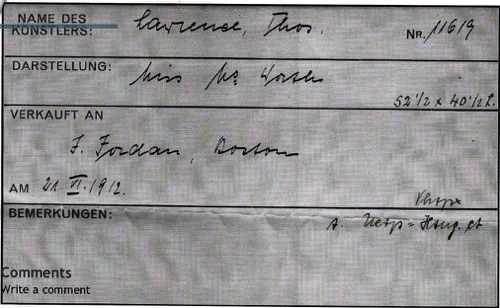 NAME DES
KÜNSTLERS: Lawrence, Thos. NR. 11619
DARSTELLUNG: Miss
52 1/2 x 40 1/2 
VERKAUFT AN
F. Jordan, Boston
AM 21. VI. 1912.
BEMERKUNGEN:
Comments
Write a comment